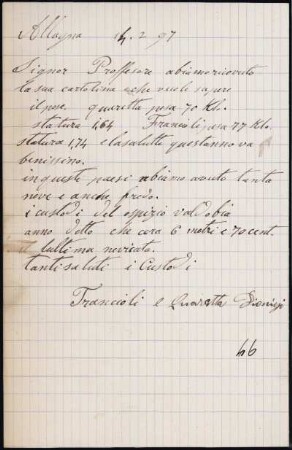 Allagna 4. 2 97
Signor Proffesore abiamo ricevuto
la sua cartolina e che vuoli sapere
il peso. quaretta pesa 70 Klo.
statura 1,64 Francioli pesa 77 Klo.
statura 1,74 e la salutte quest anno va
benissimo.
in questi paesi abiamo avuto tanta
neve e anche fredo.
i custodi del ospizio valdobia
anno detto che cera 6 metri e 70 cent.
lultima nevicata.
tanti saluti i Custodi
Francioli e Quaretta Dionigi
46